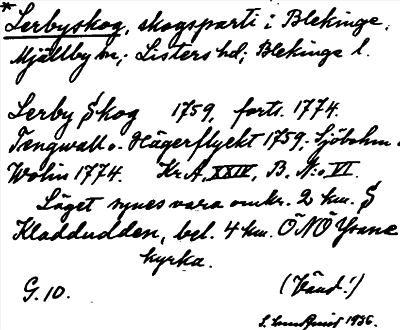 *Lerbyskog, skogsparti i Blekinge,
Mjällby sn; Listers hd; Blekinge l.
Lerby Skog 1759, forts. 1774.
Tengwall o. Hägerflyckt 1759; Sjöbohm o.
Wolin 1774. Kr. A, XXIV, B. N:o VI.
Läget synes vara omkr. 2 km. S
Kladdudden, bel. 4 km. ÖNÖ Ysane
kyrka.
G. 10. (Vänd!)
1936.